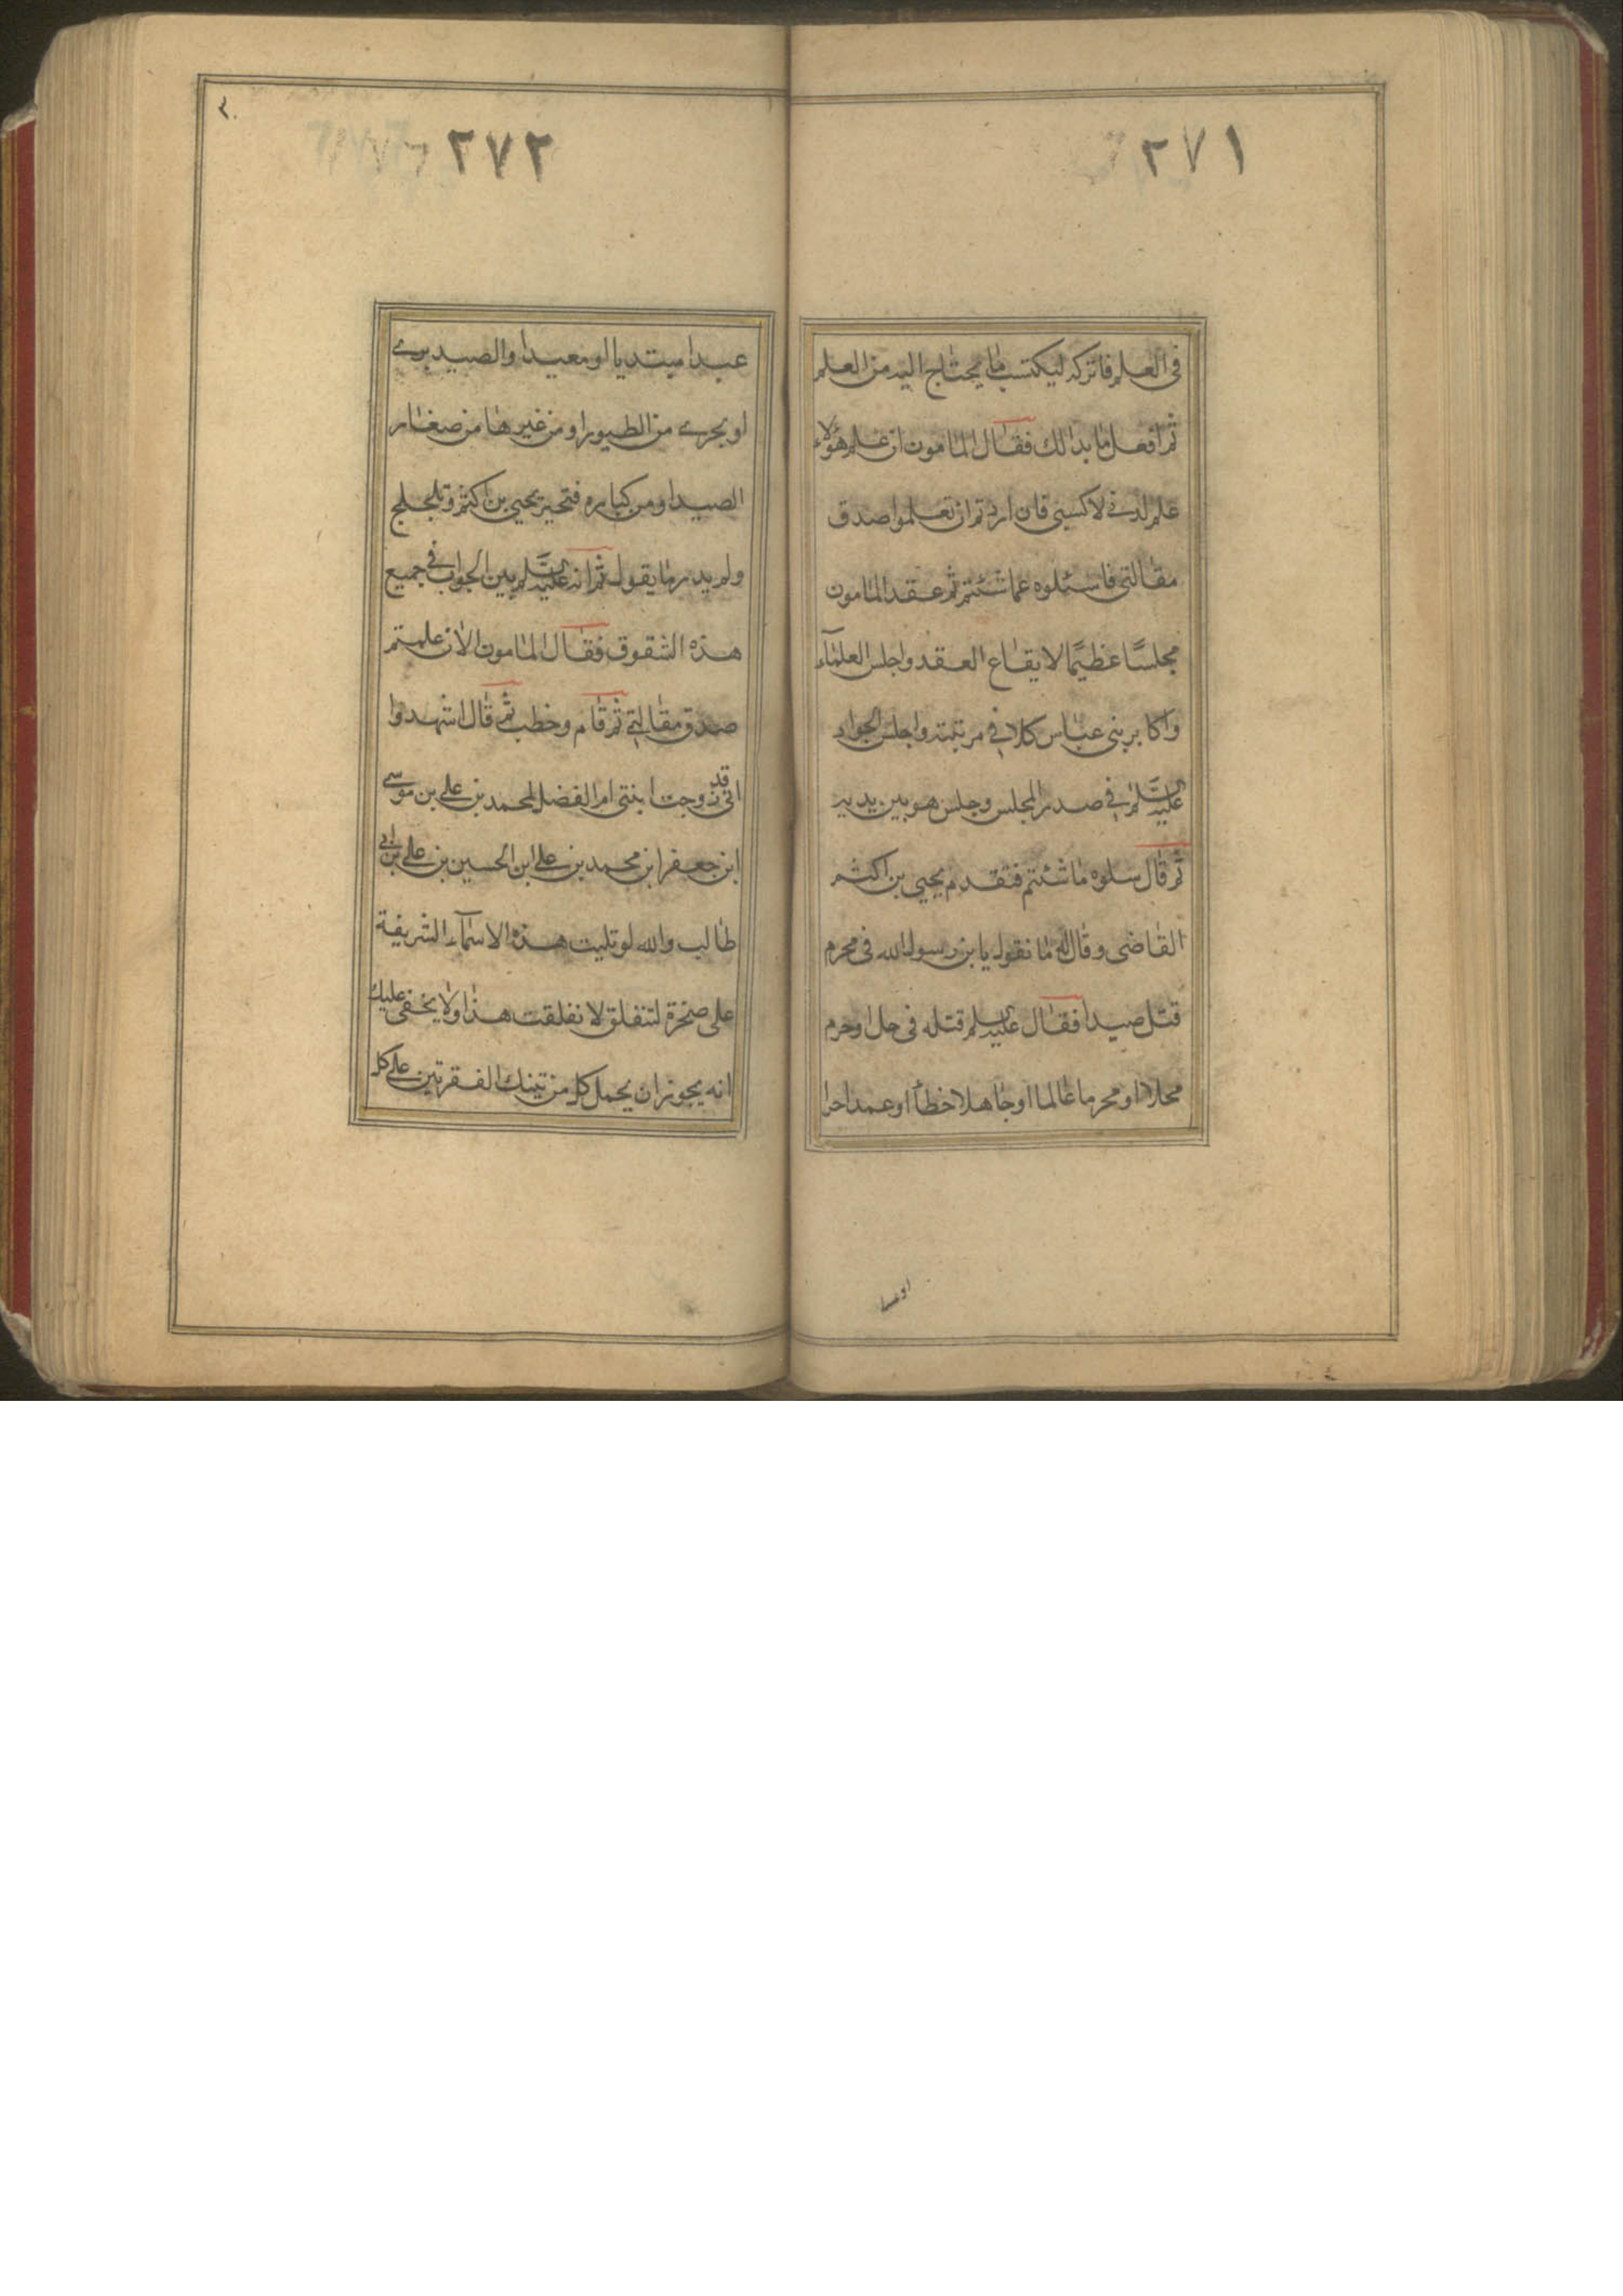 ٢٧١
في العلم فاتركه ليكتسب ما يحتاج اليه من العلم
ثم افعل ما بدا لك فقال المامون ان علم هؤلاء
علم لدني لا كسبي فان اردتم ان تعلموا صدق
مقالتي فاسئلوه عما شئتم ثم عقد المامون
مجلسًا عظيمًا لايقاع العقد واجلس العلمآء
واكابر بني عباس كلا في مرتبته واجلس الجواد
عليه السلام في صدر المجلس وجلس هو بين يديه
ثم قال سلوه ما شئتم فتقدم يحيى بن اكثم
القاضي وقال له ما نقول يا بن رسول الله في محرم
قتل صيدا فقال عليه السلم قتله في حل او حرم
محلا او محرما عالما او جاهلا خطأ او عمدا حرا
٢٧٢
عبدا مبتديا او معيدا والصيد بري
او بحري من الطيور او من غيرها من صغار
الصيد او من كباره فتحير يحيى بن اكثم وتلجلج
ولم يدر ما يقول ثم انه عليه السلم بين الجواب في جميع
هذه الشقوق فقال المامون الان علمتم
صدق مقالتي ثم قام وخطب ثم قال اشهدوا
اني قد زوجت ابنتي ام الفضل لمحمد بن علي بن موسى
ابن جعفر ابن محمد بن علي ابن الحسين بن علي بن ابي
طالب والله لو تليت هذه الاسمآء الشريفة
على صخرة لتنفلق لانفلقت هذا ولا يخفى عليك
انه يجوز ان يحمل كل من تينك الفقرتين على كل